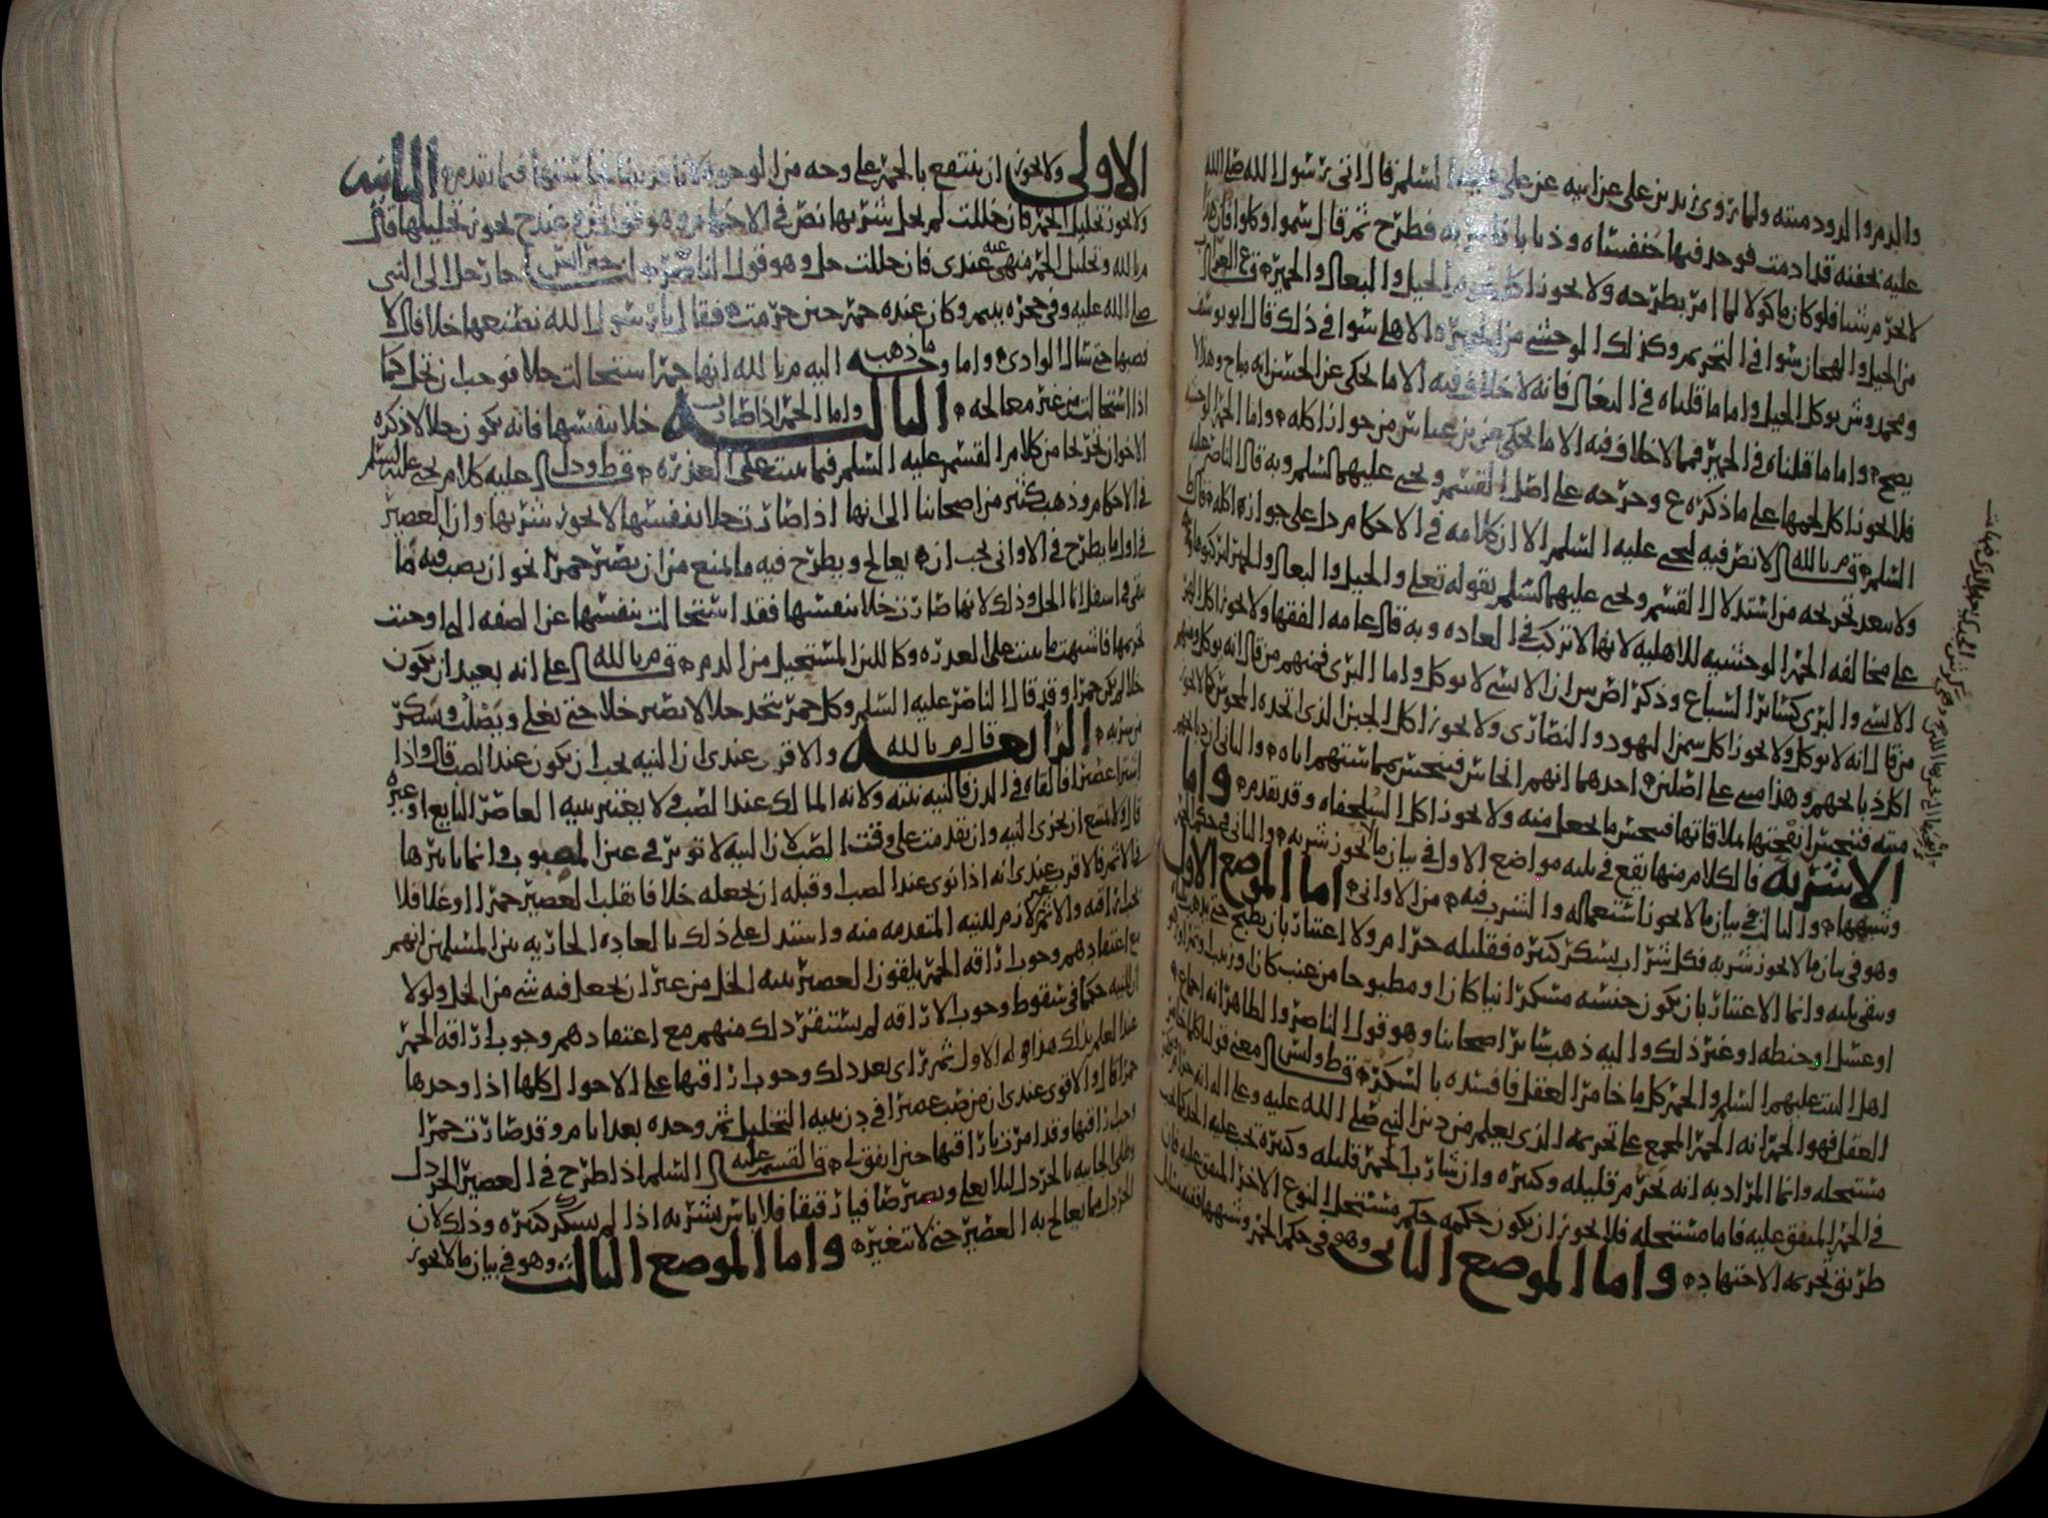 والدم والدود ميته ولما روى زيد بن علي عن ابيه عن علي عليه السلم قال اتي رسول الله صلى الله
عليه بجفنه قد ادمت فوجد فيها خنفساه وذبابا فامر به فطرح ثم قال سموا وكلوا فان هذا
لا يحرم شيا فلو كان ماكولا لما امر بطرحه ولا يجوز اكل لحوم الخيل والبغال والحمير
من الخيل والهجان سوا في التحريم وكذلك الوحشي من الحمير والاهلي سوا في ذلك قال ابو يوسف
ومحمد وش يوكل الخيل واما ما قلناه في البغال فانه لا خلاف فيه الا ما يحكى عن الحسن انه مباح وهذا لا
يصح واما ما قلناه في الحمير فمما لا خلاف فيه الا ما يحكى عن بن عباس من جواز اكله واما الحمر الوحشيه
فلا يجوز اكل لحمها على ما ذكره ع وخرجه على اصل القسم ويحيى عليهما السلم وبه قال الناصر عليه
السلم قال م بالله لا نص فيه ليحيى عليه السلم الا ان كلامه في الاحكام دل على جواز اكله
ولا يبعد تخريجه من استدلال القسم ويحيى عليهما السلم بقوله تعلى والخيل والبغال والحمير لتركبوها
على مخالفه الحمر الوحشيه للاهليه لانها لا تركب في العاده وبه قال عامه الفقها ولا يجوز اكل الهر
الانسي والبري كسائر السباع وذكر اص ان الانسي لا يوكل واما البري فمنهم من قال انه يوكل ومنهم
من قال انه لا يوكل ولا يجوز اكل سمن اليهود والنصارى ولا يجوز اكل الجبن الذي اتخذه المجوس
اكل ذبايحهم وهذا مبني على اصلين احدهما انهم انجاس فينجس بمماستهم اياه والثاني ان ذبايحهم
ميته فتنجس انفحتها بملاقاتها فينجس ما يجعل منه ولا يجوز اكل السلحفاه وقد تقدم واما
الاشربه فالكلام منها يقع في ثلثه مواضع الاول في بيان ما لا يجوز شربه والثاني في حكم الخمر
وشبهها والثالث في بيان ما لا يجوز استعماله والشرب فيه من الاواني اما الموضع الاول
وهو في بيان ما لا يجوز شربه فكل شراب يسكر كثيره فقليله حرام ولا اعتبار بان يطبخ حتى يذهب
ويبقى ثلثه وانما الاعتبار بان يكون جنسه مسكرا نيا كان او مطبوخا من عنب كان او زبيب او تمر
او عسل او حنطه او غير ذلك واليه ذهب سائر اصحابنا وهو قول الناصر والظاهر انه اجماع
اهل البيت عليهم السلم والخمر كل ما خامر العقل فافسده بالسكر وليس معنى قولنا كل ما خامر
العقل فهو الخمر انه الخمر المجمع على تحريمه الذي يعلم من دين النبي صلى الله عليه وعلى اله انه حرام
مستحله وانما المراد به انه يحرم قليله وكثيره وان شارب الخمر قليله وكثيره تجب عليه الحد
في الخمر المتفق عليه فاما مستحله فلا يجوز ان يكون حكمه حكم مستحل النوع الاخر المتفق عليه فان
طريق تحريمه الاجتهاد واما الموضع الثاني وهو في حكم الخمر وشبهها ففيه مسائل
الاولى ولا يجوز ان ينتفع بالخمر على وجه من الوجوه فيما تقدم الثانيه
ولا يجوز تخليل الخمر فان خللت لم يحل شربها نص في الاحكام وهو قول وعند ح يجوز تخليلها قال
م بالله وتخليل الخمر منهي عنه عندي فان خللت حل وهو قول الناصر جا رجل الى النبي
صلى الله عليه وفي حجره يتيم وكان عنده خمر حين حرمت فقال يا رسول الله نصنعها خلا قال لا
فصبها حتى سال الوادي واما وجه ما ذهب اليه م بالله انها خمر استحالت خلا فوجب ان تحل كما
اذا استحالت من غير معالجه الثالثه واما الخمر اذا صارت خلا بنفسها فانه يكون حلالا ذكره
الاخوان تخريجا من كلام القسم عليه السلم فيما ينبت على العذره قال ط ودل عليه كلام يحيى عليه السلم
في الاحكام وذهب كثير من اصحابنا الى انها اذا صارت خلا بنفسها لا يجوز شربها وان العصير
في اول ما يطرح في الاواني يجب ان يعالج ويطرح فيه ما يمنع من ان يصير خمرا نحو ان يصب فيه ما
بقي في اسفل انا الخل وذلك لانها صارت خلا بنفسها فقد استحالت بنفسها عن الصفه التي اوجبت
تحريمها فاشبهت ما ينبت على العذره وكاللبن المستحيل من الدم قال م بالله على انه بعيد ان يكون
خلا لم يكن خمرا وقد قال الناصر عليه السلم وكل خمر تتخذ خلا لا تصير خلا حتى تغلي ويصلب ويسكر
من شربه الرابعه قال م بالله والاقرب عندي ان النيه يجب ان يكون عند الصب قال واذا
اشترا عصيرا فالقاه في الدن فالنيه نيته ولانه المالك عند الصب ولا يعتبر نيه العاصر البايع او غيره
قال ولا يمتنع ان يجزي النيه وان تقدمت على وقت الصب لان النيه لا توثر في عين المصبوب وانما تاثيرها
في الاثم فالاقرب عندي انه اذا نوى عند الصب او قبله ان يجعله خلا فانقلب العصير خمرا او غلا فلا
تجب اراقه والاثم غير لازم للنيه المتقدمه منه واستدل على ذلك بالعاده الجاريه بين المسلمين انهم
مع اعتقادهم وجوب اراقه الخمر يلقون العصير بنيه الخل من غير ان يجعل فيه شي من الخل ولولا
ان للنيه حكما في سقوط وجوب الاراقه لم يستقر ذلك منهم مع اعتقادهم وجوب اراقه الخمر
عند العلم بذلك هذا قوله الاول ثم راى بعد ذلك وجوب اراقتها على الاحوال كلها اذا وجدها
خمرا قال والاقوى عندي ان من صب عصيرا في دن بنيه التخليل ثم وجده بعد ايام وقد صارت خمرا
وجب اراقتها وقد امرت باراقتها حين اتفق لي قال القسم عليه السلم اذا طرح في العصير الخردل
وطلي الجابيه بالخردل لئلا يغلي ويصير صافيا رقيقا فلا باس بشربه اذا لم يسكر كثيره وذلك لان
الخردل مما يعالج به العصير حتى لا يتغير واما الموضع الثالث وهو في بيان ما لا يجوز